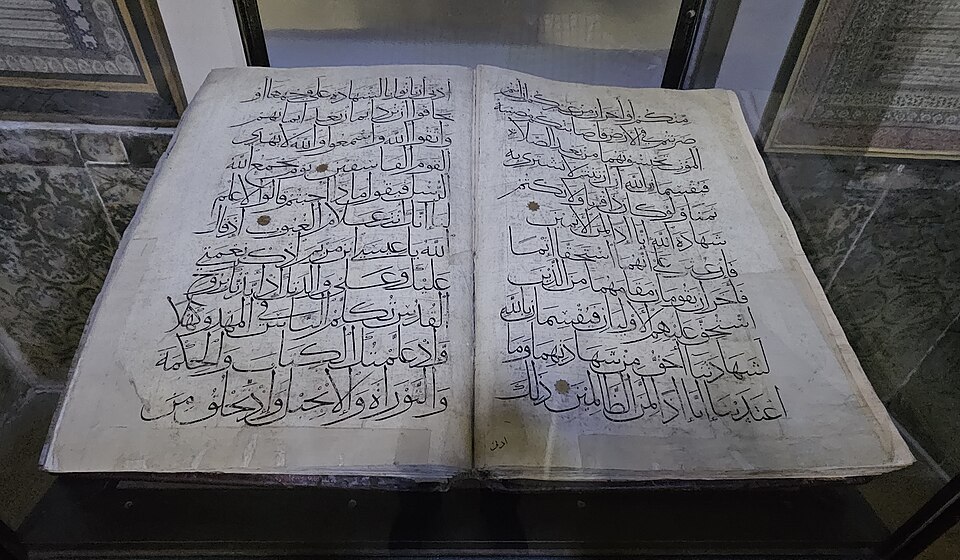 منكم أو آخران من غيركم إن أنتم
ضربتم في الأرض فأصابتكم مصيبة
الموت تحبسونهما من بعد الصلاة
فيقسمان بالله إن ارتبتم لا نشتري به
ثمنا ولو كان ذا قربى ولا نكتم
شهادة الله إنا إذا لمن الآثمين
فإن عثر على أنهما استحقا إثما
فآخران يقومان مقامهما من الذين
استحق عليهم الأوليان فيقسمان بالله
لشهادتنا أحق من شهادتهما وما
اعتدينا إنا إذا لمن الظالمين ذلك
ادنى
أدنى أن يأتوا بالشهادة على وجهها أو
يخافوا أن ترد أيمان بعد أيمانهم
واتقوا الله واسمعوا والله لا يهدي
القوم الفاسقين يوم يجمع الله
الرسل فيقول ماذا أجبتم قالوا لا علم
لنا إنك أنت علام الغيوب إذ قال
الله يا عيسى ابن مريم اذكر نعمتي
عليك وعلى والدتك إذ أيدتك بروح
القدس تكلم الناس في المهد وكهلا
وإذ علمتك الكتاب والحكمة
والتوراة والإنجيل وإذ تخلق من